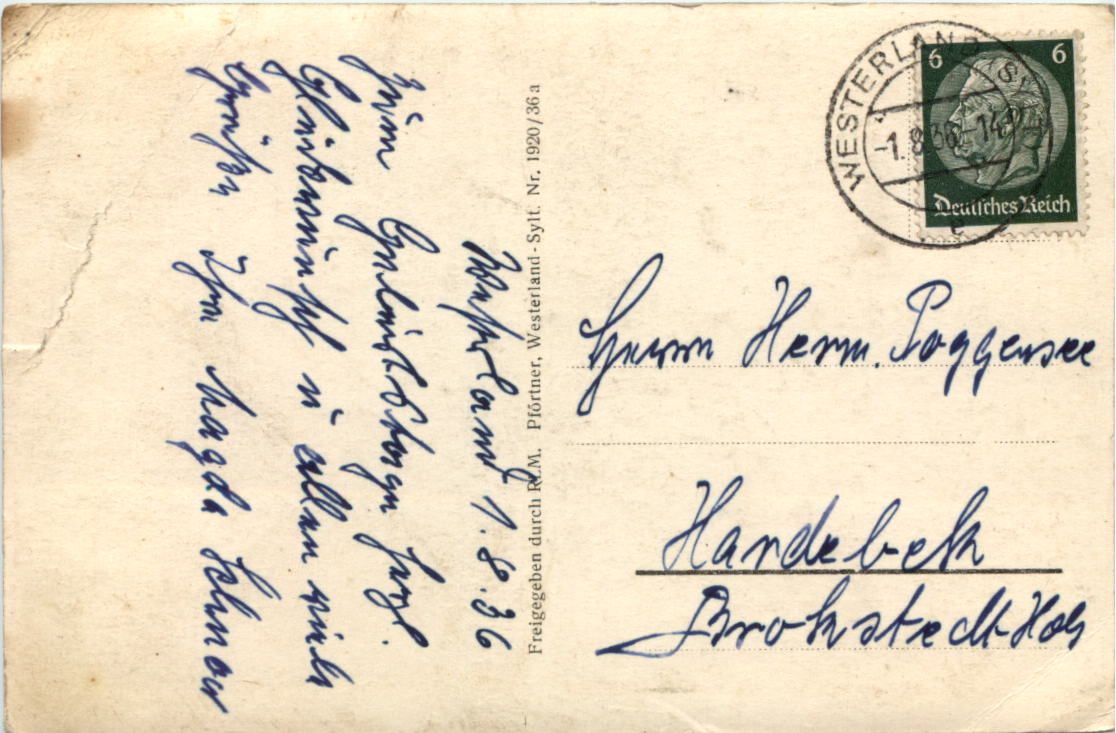 Westerland 1.8.36
Zum Geburtstage herzl.
Glückwunsch u allen viele
Grüße Ihre Magda
Freigegeben durch RLM. Pförtner, Westerland-Sylt. Nr. 1920/36a
WESTERLAND SYLT
-1.8.36-14
6 6
Deutsches Reich
Herrn Herm. Poggensee
Hardebek
Brokstedt-Hols